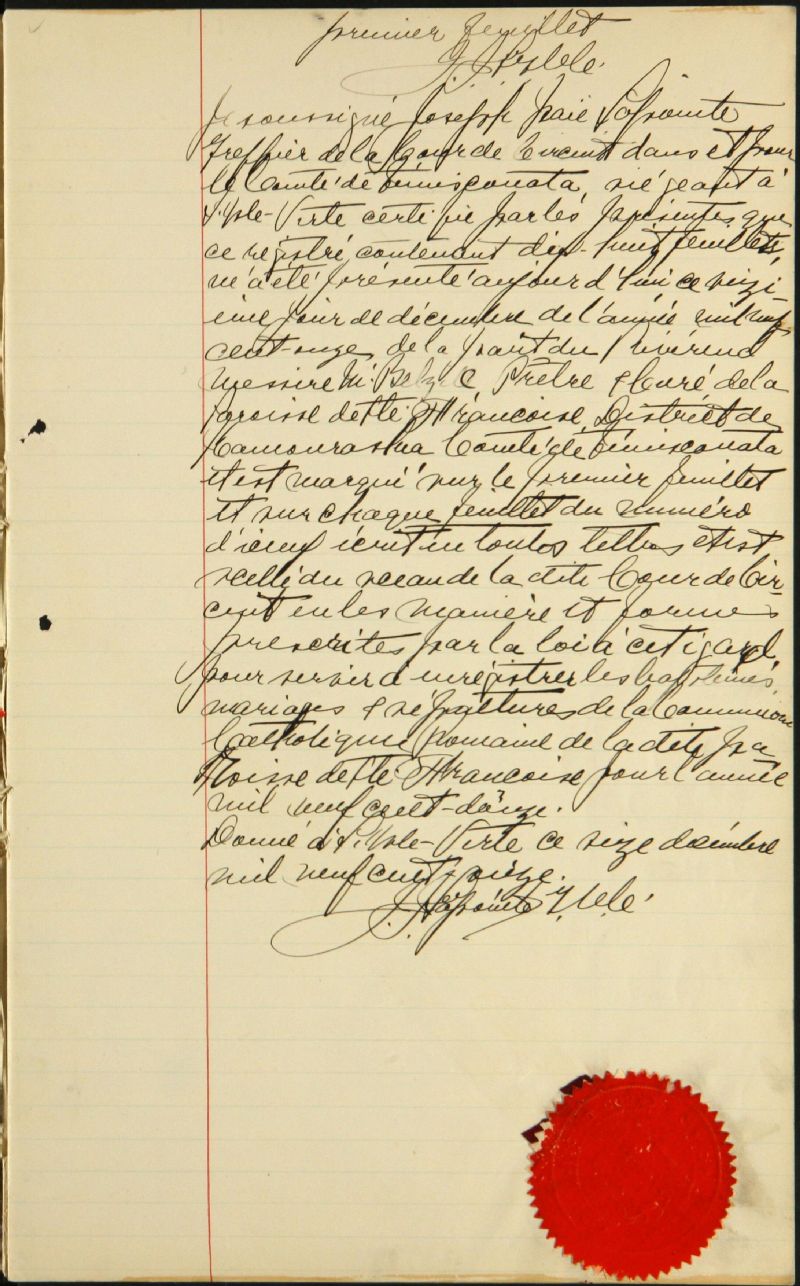 premier feuillet
Je soussigné Joseph Isaïe Lapointe
Greffier de la Cour de Circuit dans et pour
le Comté de Témiscouata, siégeant à
L'Isle-Verte certifie par les présentes que
ce registre contenant dix-huit feuillets,
m'a été présenté aujourd'hui ce seizi-
ème jour de décembre de l'année mil neuf
cent-onze, de la part du Révérend
Messire M. Belzile Prêtre & Curé de la
paroisse de Ste Françoise, District de
Kamouraska Comté de Témiscouata
et est marqué sur le premier feuillet
et sur chaque feuillet du numéro
d'iceux écrit en toutes lettres et est
scellé du sceau de la dite Cour de Cir-
cuit en les manière et formes
prescrites par la loi à cet égard,
pour servir à enregistrer les baptêmes,
mariages & sépultures de la Communion
Catholique Romaine de la dite pa
roisse de Ste Françoise pour l'année
mil neuf cent-douze.
Donné à L'Isle-Verte ce seize décembre
mil neuf cent onze.
J. I. Lapointe